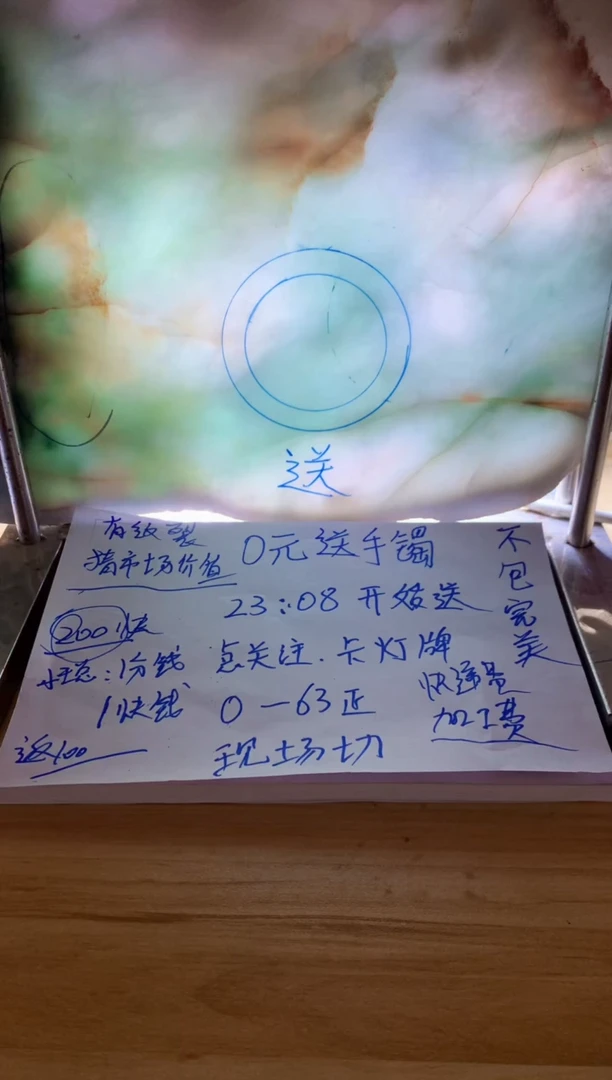 送
有纹裂
猜市场价值
0元送手镯
不包完美
23:08开始送
200块
1分钱
点关注.卡灯牌
快递费
1块钱
0-63正
加工费
返100
现场切